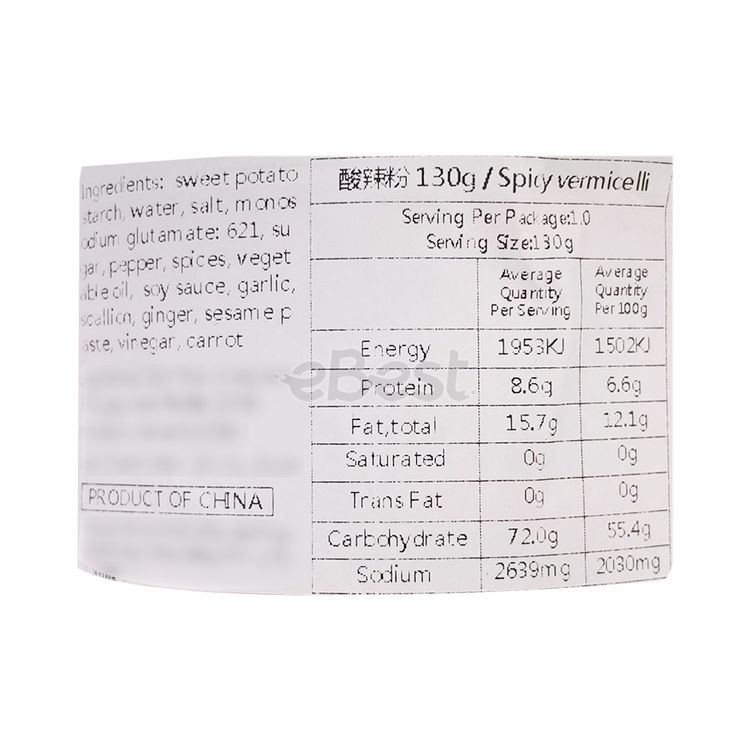 Ingredients: sweet potato
starch, water, salt, monos
odium glutamate: 621, su
gar, pepper, spices, veget
able oil, soy sauce, garlic,
scallion, ginger, sesame p
aste, vinegar, carrot
PRODUCT OF CHINA
酸辣粉 130g / Spicy vermicelli
Serving Per Package:1.0
Serving Size:130g
Average Quantity Per Serving Average Quantity Per 100g
Energy 1953KJ 1502KJ
Protein 8.6g 6.6g
Fat,total 15.7g 12.1g
Saturated 0g 0g
Trans Fat 0g 0g
Carbohydrate 72.0g 55.4g
Sodium 2639mg 2030mg
eBest